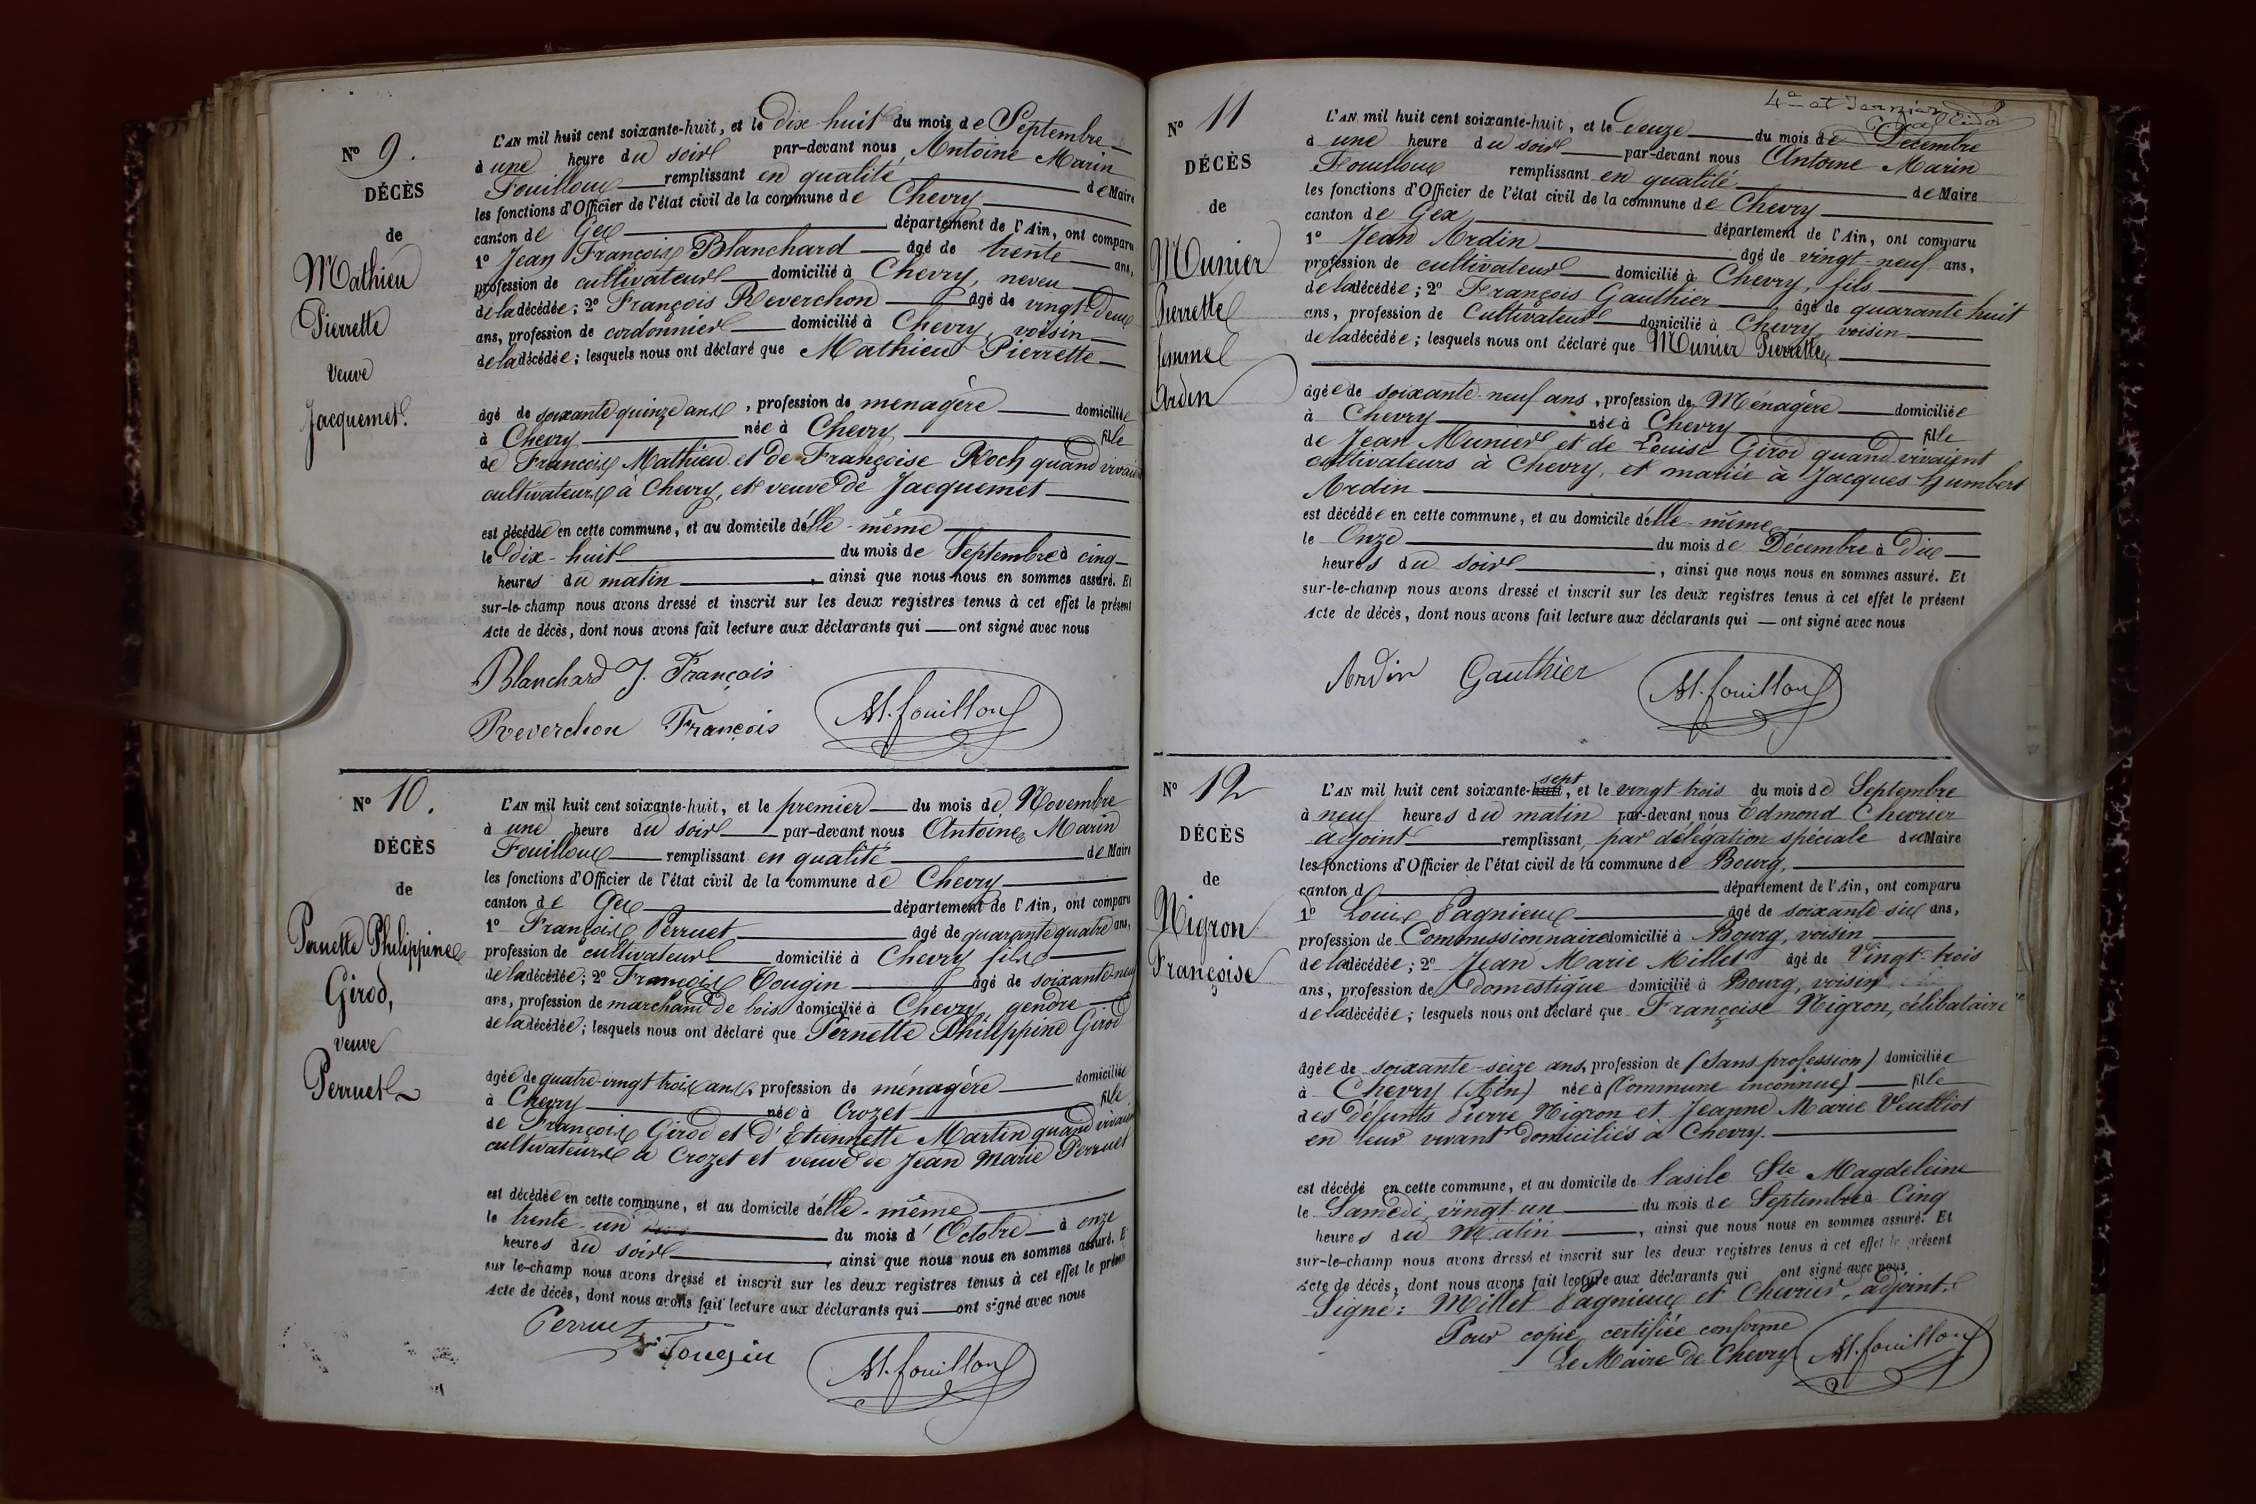 N° 9.
DÉCÈS
de
Mathieu
Pierrette
veuve
Jacquemet.
L'AN mil huit cent soixante-huit, et le dix-huit du mois de Septembre
à une heure du soir par-devant nous Antoine Marin
Fouilloux remplissant en qualité de Maire
les fonctions d'Officier de l'état civil de la commune de Chevry
canton de Gex département de l'Ain, ont comparu
1° Jean François Blanchard âgé de trente ans,
profession de cultivateur domicilié à Chevry, neveu
de la décédée; 2° François Reverchon âgé de vingt-deux
ans, profession de cordonnier domicilié à Chevry, voisin
de la décédée; lesquels nous ont déclaré que Mathieu Pierrette
âgé de soixante-quinze ans, profession de ménagère domiciliée
à Chevry née à Chevry fille
de François Mathieu et de Françoise Roch quand vivaient
cultivateurs à Chevry, et veuve de Jacquemet
est décédée en cette commune, et au domicile d'elle-même
le dix-huit du mois de Septembre à cinq
heures du matin, ainsi que nous nous en sommes assuré. Et
sur-le-champ nous avons dressé et inscrit sur les deux registres tenus à cet effet le présent
Acte de décès, dont nous avons fait lecture aux déclarants qui ont signé avec nous
Blanchard J. François
Reverchon François
M. fouilloux
N° 10.
DÉCÈS
de
Pernette Philippine
Girod,
veuve
Perruet
L'AN mil huit cent soixante-huit, et le premier du mois de Novembre
à une heure du soir par-devant nous Antoine Marin
Fouilloux remplissant en qualité de Maire
les fonctions d'Officier de l'état civil de la commune de Chevry
canton de Gex département de l'Ain, ont comparu
1° François Perruet âgé de quarante quatre ans,
profession de cultivateur domicilié à Chevry fils
de la décédée; 2° François Tougin âgé de soixante-neuf
ans, profession de marchand de bois domicilié à Chevry, gendre
de la décédée; lesquels nous ont déclaré que Pernette Philippine Girod
âgée de quatre-vingt trois ans, profession de ménagère domiciliée
à Chevry née à Crozet fille
de François Girod et d'Etiennette Martin quand vivaient
cultivateurs à Crozet et veuve de Jean Marie Perruet
est décédée en cette commune, et au domicile d'elle-même
le trente-un du mois d'Octobre à onze
heures du soir, ainsi que nous nous en sommes assuré. Et
sur le-champ nous avons dressé et inscrit sur les deux registres tenus à cet effet le présent
Acte de décès, dont nous avons fait lecture aux déclarants qui ont signé avec nous
Perruet
Tougin
M. fouilloux
4e et dernier
N° 11
DÉCÈS
de
Munier
Pierrette
femme
Ardin
L'AN mil huit cent soixante-huit, et le douze du mois de Décembre
à une heure du soir par-devant nous Antoine Marin
Fouilloux remplissant en qualité de Maire
les fonctions d'Officier de l'état civil de la commune de Chevry
canton de Gex département de l'Ain, ont comparu
1° Jean Ardin âgé de vingt-neuf ans,
profession de cultivateur domicilié à Chevry, fils
de la décédée; 2° François Gauthier âgé de quarante huit
ans, profession de Cultivateur domicilié à Chevry voisin
de la décédée; lesquels nous ont déclaré que Munier Pierrette
âgée de soixante-neuf ans, profession de Ménagère domiciliée
à Chevry née à Chevry fille
de Jean Munier et de Louise Girod quand vivaient
cultivateurs à Chevry, et mariée à Jacques Humbert
Ardin
est décédée en cette commune, et au domicile d'elle-même
le Onze du mois de Décembre à Dix
heures du soir, ainsi que nous nous en sommes assuré. Et
sur-le-champ nous avons dressé et inscrit sur les deux registres tenus à cet effet le présent
Acte de décès, dont nous avons fait lecture aux déclarants qui ont signé avec nous
Ardin Gauthier M. fouilloux
N° 12
DÉCÈS
de
Nigron
Françoise
L'AN mil huit cent soixante-huit sept, et le vingt trois du mois de Septembre
à neuf heures du matin par-devant nous Edmond Chevrier
adjoint remplissant par délégation spéciale du Maire
les fonctions d'Officier de l'état civil de la commune de Bourg,
canton d département de l'Ain, ont comparu
1° Louis Pagnieux âgé de soixante-six ans,
profession de Commissionnaire domicilié à Bourg, voisin
de la décédée; 2° Jean Marie Millet âgé de Vingt-trois
ans, profession de domestique domicilié à Bourg, voisin
de la décédée; lesquels nous ont déclaré que Françoise Nigron, célibataire
âgée de soixante-seize ans, profession de (Sans profession) domiciliée
à Chevry (Ain) née à (Commune inconnue) fille
des défunts Pierre Nigron et Jeanne Marie Veulliot
en leur vivant domiciliés à Chevry.
est décédé en cette commune, et au domicile de l'asile Ste Magdeleine
le Samedi vingt un du mois de Septembre à Cinq
heures du Matin, ainsi que nous nous en sommes assuré. Et
sur-le-champ nous avons dressé et inscrit sur les deux registres tenus à cet effet le présent
Acte de décès, dont nous avons fait lecture aux déclarants qui ont signé avec nous
Signé: Millet Pagnieux et Chevrier, adjoint.
Pour copie certifiée conforme
Le Maire de Chevry M. fouilloux